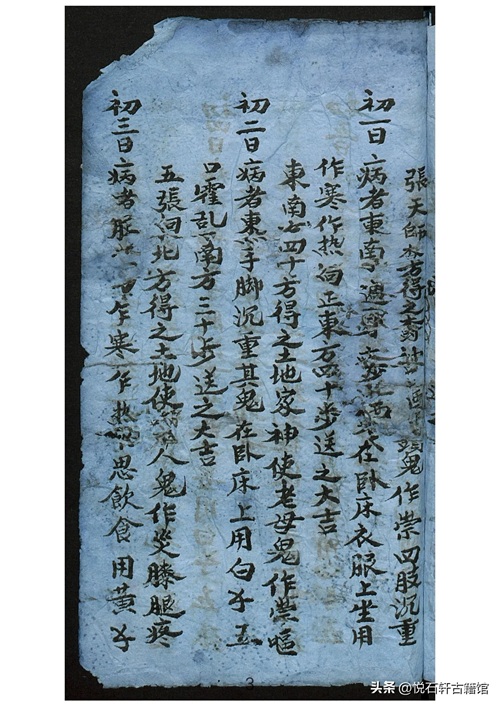 張天師方得之鬼作祟四股沉重
初一日病者東南在卧床衣服上坐用
作寒作热向正東方四十步送之大吉
東南四十方得之土地家神使老母鬼作祟嘔
初二日病者東手脚沉重其鬼在卧床上用白五
口霍乱南方三十步送之大吉
五張北方得之土地使人鬼作災膝腿疼
初三日病者乍寒作热思飲食用黄
3
头条 @悦石轩古籍馆